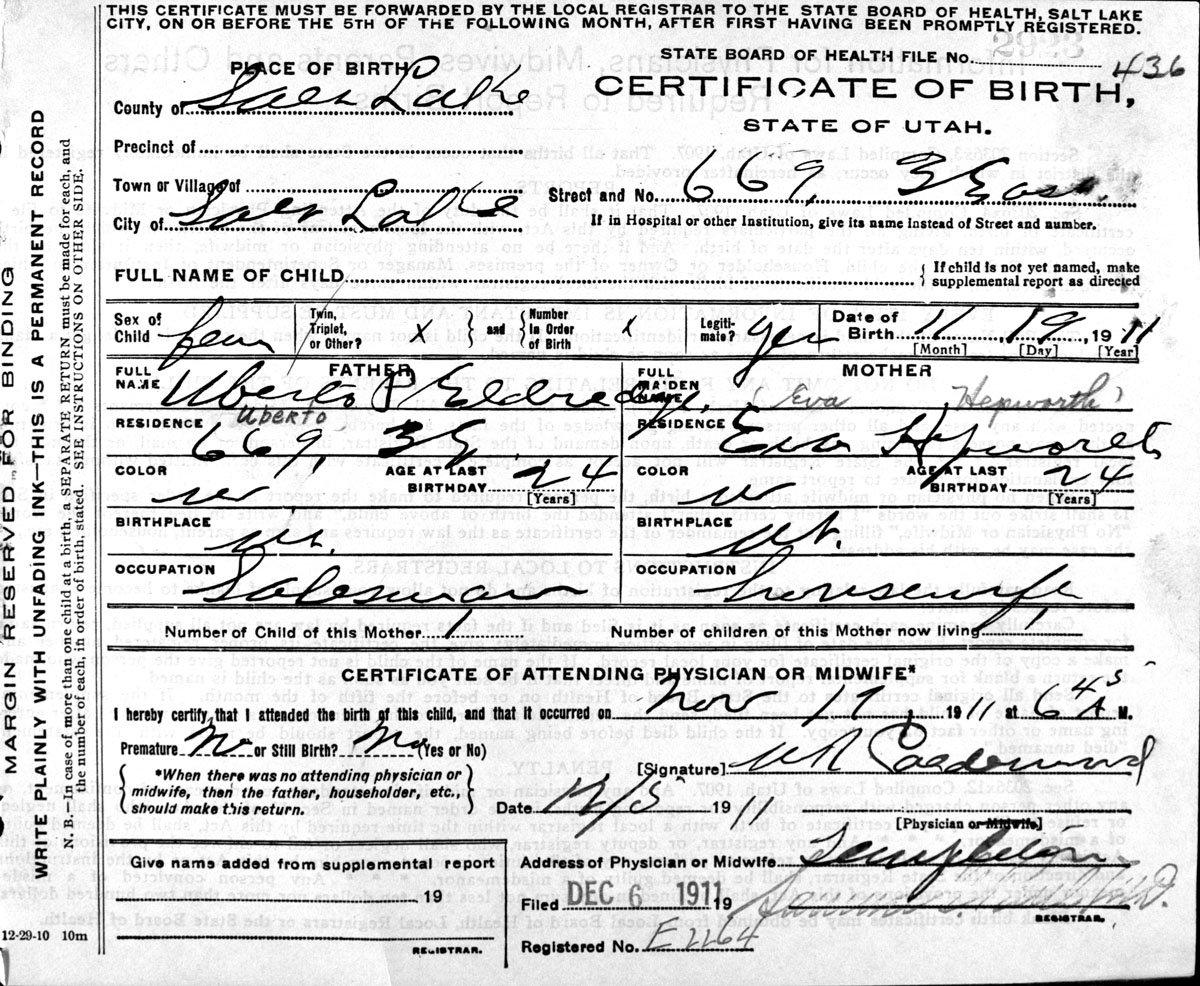 THIS CERTIFICATE MUST BE FORWARDED BY THE LOCAL REGISTRAR TO THE STATE BOARD OF HEALTH, SALT LAKE
CITY, ON OR BEFORE THE 5TH OF THE FOLLOWING MONTH, AFTER FIRST HAVING BEEN PROMPTLY REGISTERED.
MARGIN RESERVED FOR BINDING
WRITE PLAINLY WITH UNFADING INK—THIS IS A PERMANENT RECORD
N. B.—In case of more than one child at a birth, a SEPARATE RETURN must be made for each, and
the number of each, in order of birth, stated. SEE INSTRUCTIONS ON OTHER SIDE.
STATE BOARD OF HEALTH FILE No. 436
PLACE OF BIRTH
CERTIFICATE OF BIRTH,
County of Salt Lake
STATE OF UTAH.
Precinct of
Town or Village of
Street and No. 669, 3 East
City of Salt Lake
If in Hospital or other Institution, give its name instead of Street and number.
FULL NAME OF CHILD
If child is not yet named, make
supplemental report as directed
Sex of Child fem
Twin, Triplet, or Other?
and
Number in Order of Birth
Legitimate? yes
Date of Birth 11 19, 1911
[Month] [Day] [Year]
FATHER
FULL NAME Uberto Eldredge
Uberto
MOTHER
FULL MAIDEN NAME Eva Hepworth
RESIDENCE 669, 3 E
RESIDENCE Eva Hepworth
COLOR w
AGE AT LAST BIRTHDAY 24
[Years]
COLOR w
AGE AT LAST BIRTHDAY 24
[Years]
BIRTHPLACE
BIRTHPLACE Ut.
OCCUPATION Salesman
OCCUPATION housewife
Number of Child of this Mother 1
Number of children of this Mother now living 1
CERTIFICATE OF ATTENDING PHYSICIAN OR MIDWIFE*
I hereby certify that I attended the birth of this child, and that it occurred on Nov 19, 1911 at 6 45 A M.
Premature No or Still Birth? No (Yes or No)
*When there was no attending physician or
midwife, then the father, householder, etc.,
should make this return.
[Signature] W R Calderwood
Date 12/5 1911
[Physician or Midwife]
Give name added from supplemental report
19
REGISTRAR.
Address of Physician or Midwife
Filed DEC 6 1911 19
REGISTRAR.
Registered No. E2264
12-29-10 10m